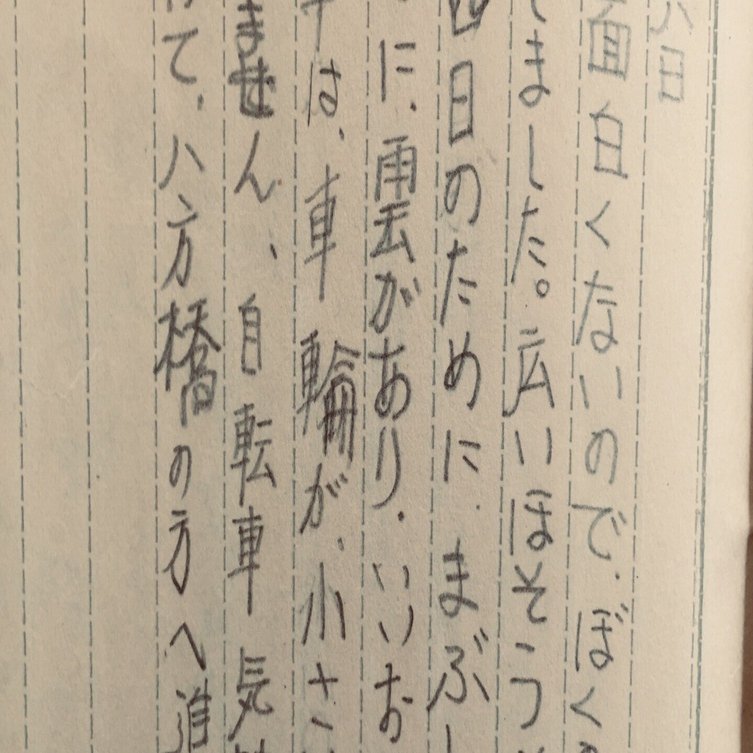 六日
面白くないので、ぼくは
てました。広いほそうい
四日のために、まぶし
に、雲があり、いいお
は、車輪が、小さい
ません、自転車気
けて、八方橋の方へ進